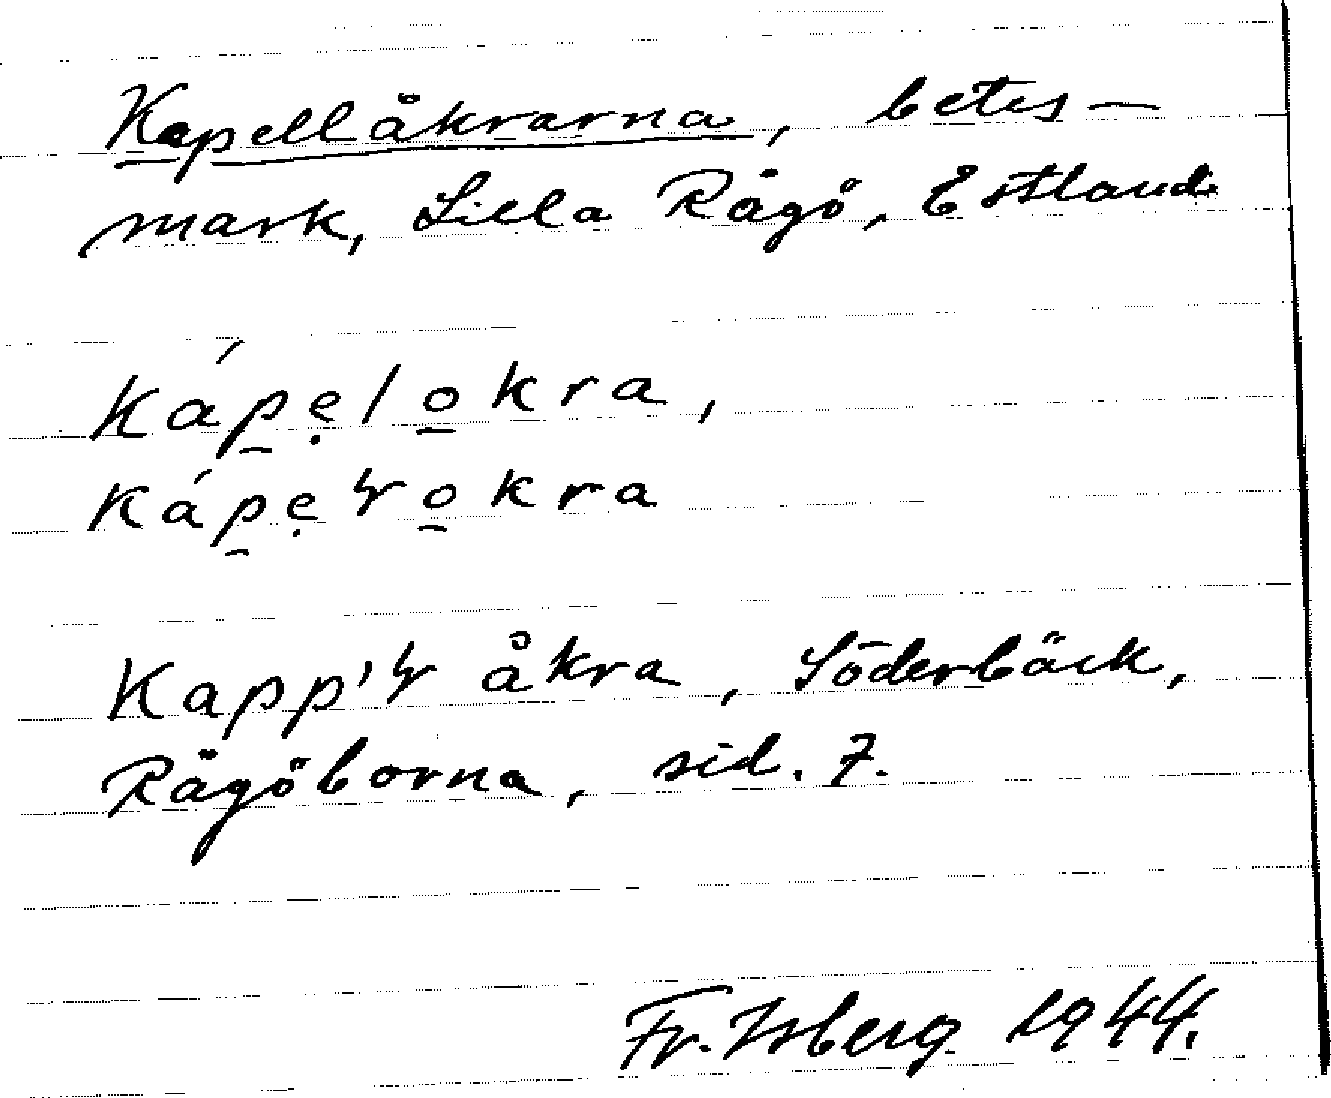 Kapellåkrarna, betes-
mark, Lilla Rågö, Estland
káp̲ẹlo̲kra,
káp̲ẹɽo̲kra
Kapp'ɽ åkra, Söderbäck,
Rågöborna, sid. 7.
Fr. Isberg 1944.